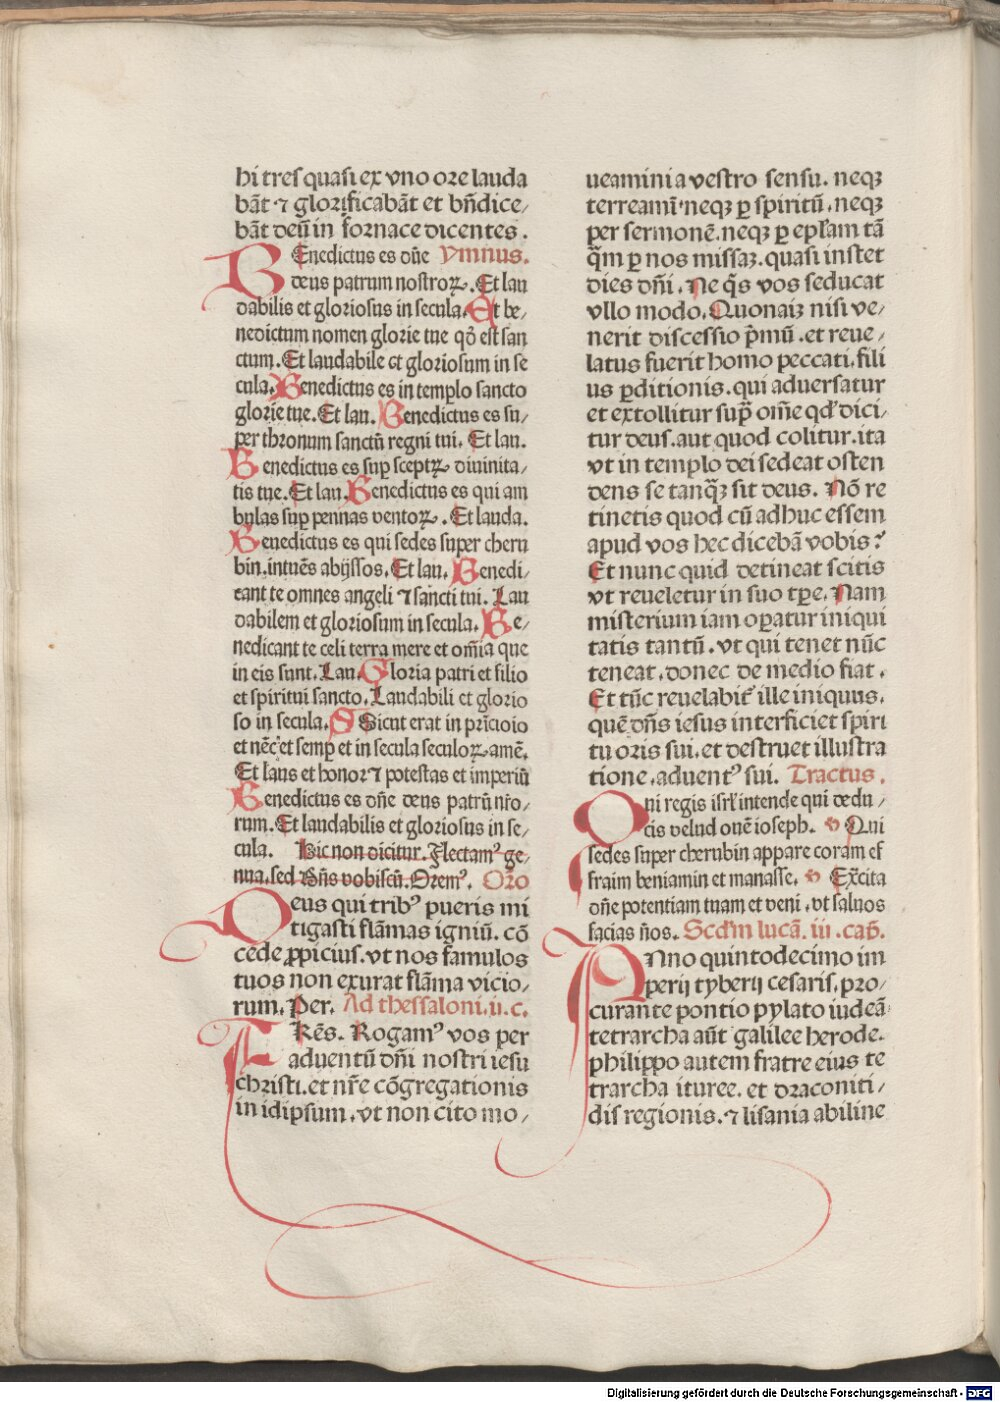 hi tres quasi ex vno ore lauda
bāt ⁊ glorificabāt et bn̄dice⸗
bāt deū in fornace dicentes.
BEnedictus es dn̄e Ymnus.
deus patrum nostroꝝ. Et lau
dabilis et gloriosus in secula. Et be⸗
nedictum nomen glorie tue qd̓ est san
ctum. Et laudabile et gloriosum in se
cula. Benedictus es in templo sancto
glorie tue. Et lau. Benedictus es su⸗
per thronum sanctū regni tui. Et lau.
Benedictus es sup sceptꝝ diuinita⸗
tis tue. Et lau. Benedictus es qui am
bulas sup pennas ventoꝝ. Et lauda.
Benedictus es qui sedes super cheru
bin. intuēs abyssos. Et lau. Benedi⸗
cant te omnes angeli ⁊ sancti tui. Lau
dabilem et gloriosum in secula. Be⸗
nedicant te celi terra mere et om̄ia que
in eis sunt. Lau. Gloria patri et filio
et spiritui sancto. Laudabili et glorio
so in secula. SSicut erat in pricioio
et nēc et semp et in secula seculoꝝ amē.
Et laus et honor ⁊ potestas et imperiū
Benedictus es dn̄e deus patrū nr̄o⸗
rum. Et laudabilis et gloriosus in se⸗
cula. Hic non dicitur. Flectamꝰ ge⸗
nua. sed Dn̄s vobiscū. Oremꝰ. Oro
Deus qui tribꝰ pueris mi
tigasti flāmas igniū. cō
cede ꝓpicius. vt nos famulos
tuos non exurat flāma vicio⸗
rum. Per. Ad thessaloni. ii. c.
FRēs. Rogamꝰ vos per
aduentū dn̄i nostri iesu
christi. et nr̄e cōgregationis
in idipsum. vt non cito mo⸗
ueamini a vestro sensu. neqꝫ
terreami᷑ neqꝫ ꝑ spiritū. neqꝫ
per sermonē. neqꝫ ꝑ epl̄am tā
q̄m ꝑ nos missaꝫ. quasi instet
dies dn̄i. Ne q̄s vos seducat
vllo modo. Quoniaꝫ nisi ve⸗
nerit discessio p̄mū. et reue⸗
latus fuerit homo peccati. fili
us ꝑditionis. qui aduersatur
et extollitur sup̄ om̄e qd̓ dici⸗
tur deus. aut quod colitur. ita
vt in templo dei sedeat osten
dens se tanqꝫ̄ sit deus. Nō re
tinetis quod cū adhuc essem
apud vos hec dicebā vobis?
Et nunc quid detineat scitis
vt reueletur in suo tꝑe. Nam
misterium iam oꝑatur iniqui
tatis tantū. vt qui tenet nūc
teneat. donec de medio fiat.
Et tūc reuelabit᷑ ille iniquus.
quē dn̄s iesus interficiet spiri
tu oris sui. et destruet illustra
tione. aduentꝰ sui. Tractus.
Qui regis isrl̄ intende qui dedu⸗
cis velud ouē ioseph. ℣ Qui
sedes super cherubin appare coram ef
fraim beniamin et manasse. ℣ Excita
dn̄e potentiam tuam et veni. vt saluos
facias n̄os. Scd̄m lucā. iii. cap̄.
ANno quintodecimo im
perij tyberij cesaris. pro⸗
curante pontio pylato iudeā
tetrarcha aūt galilee herode.
philippo autem fratre eius te
trarcha ituree. et draconiti⸗
dis regionis. ⁊ lisania abiline
Digitalisierung gefördert durch die Deutsche Forschungsgemeinschaft - DFG